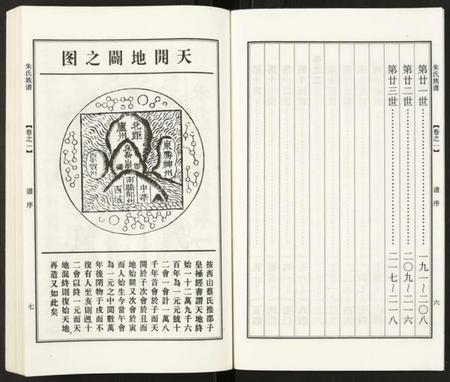 朱氏族谱
【卷之一】
谱序
六
第廿一世……一九一～二〇八
第廿二世……二〇九～二一六
第廿三世……二一七～二一八
朱氏族谱
【卷之一】
谱序
七
天開地闢之图
北
盧州
東
神州
中華
西域
按西山蔡氏推邵子
皇極經書謂天地終
始一十二萬九千六
百年為一元元統十
二會一會計一萬八
千年首會於子而天
開於子次會於丑而
地始闢又次會於寅
而人始生今當午會
為一元之中閱數萬
年後閉物于戌而不
復有人至亥則週十
二會以終一元而天
地混終則復始天地
再造又如此矣